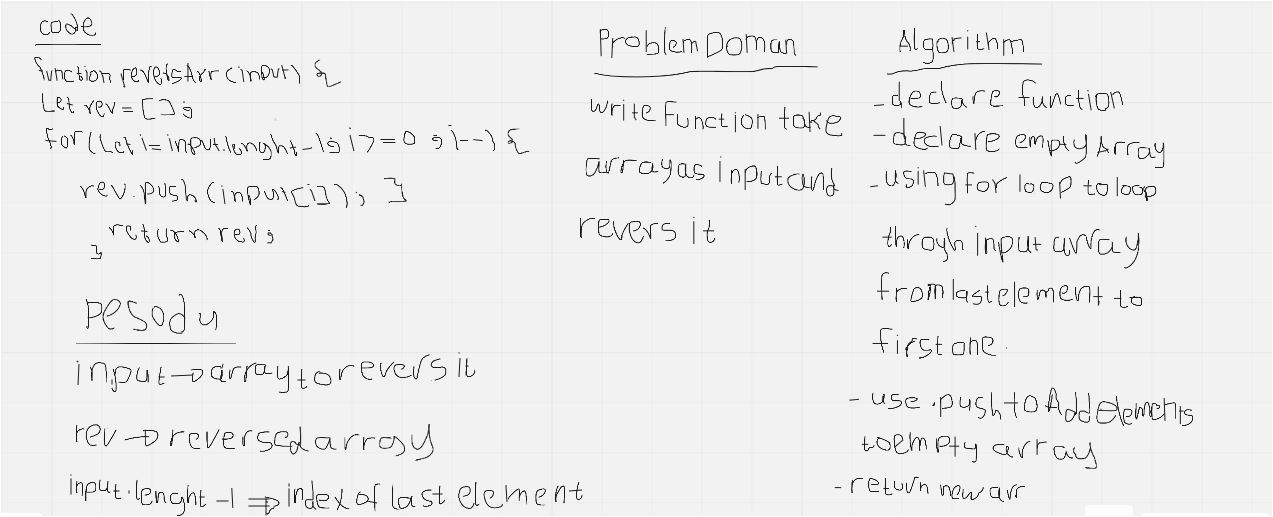 code
function reversArr(input) {
Let rev = [];
for(Let i= input.lenght-1; i>=0 ; i--) {
rev.push(input[i]); }
return rev;
}
pesodu
input → array to revers it
rev → reversed array
input.lenght -1 ⇒ index of last element
Problem Doman
write Function take
array as input and
revers it
Algorithm
- declare function
- declare empty Array
- using for loop to loop
throgh input array
from last element to
first one.
- use .push to Add elements
to empty array
- return new arr